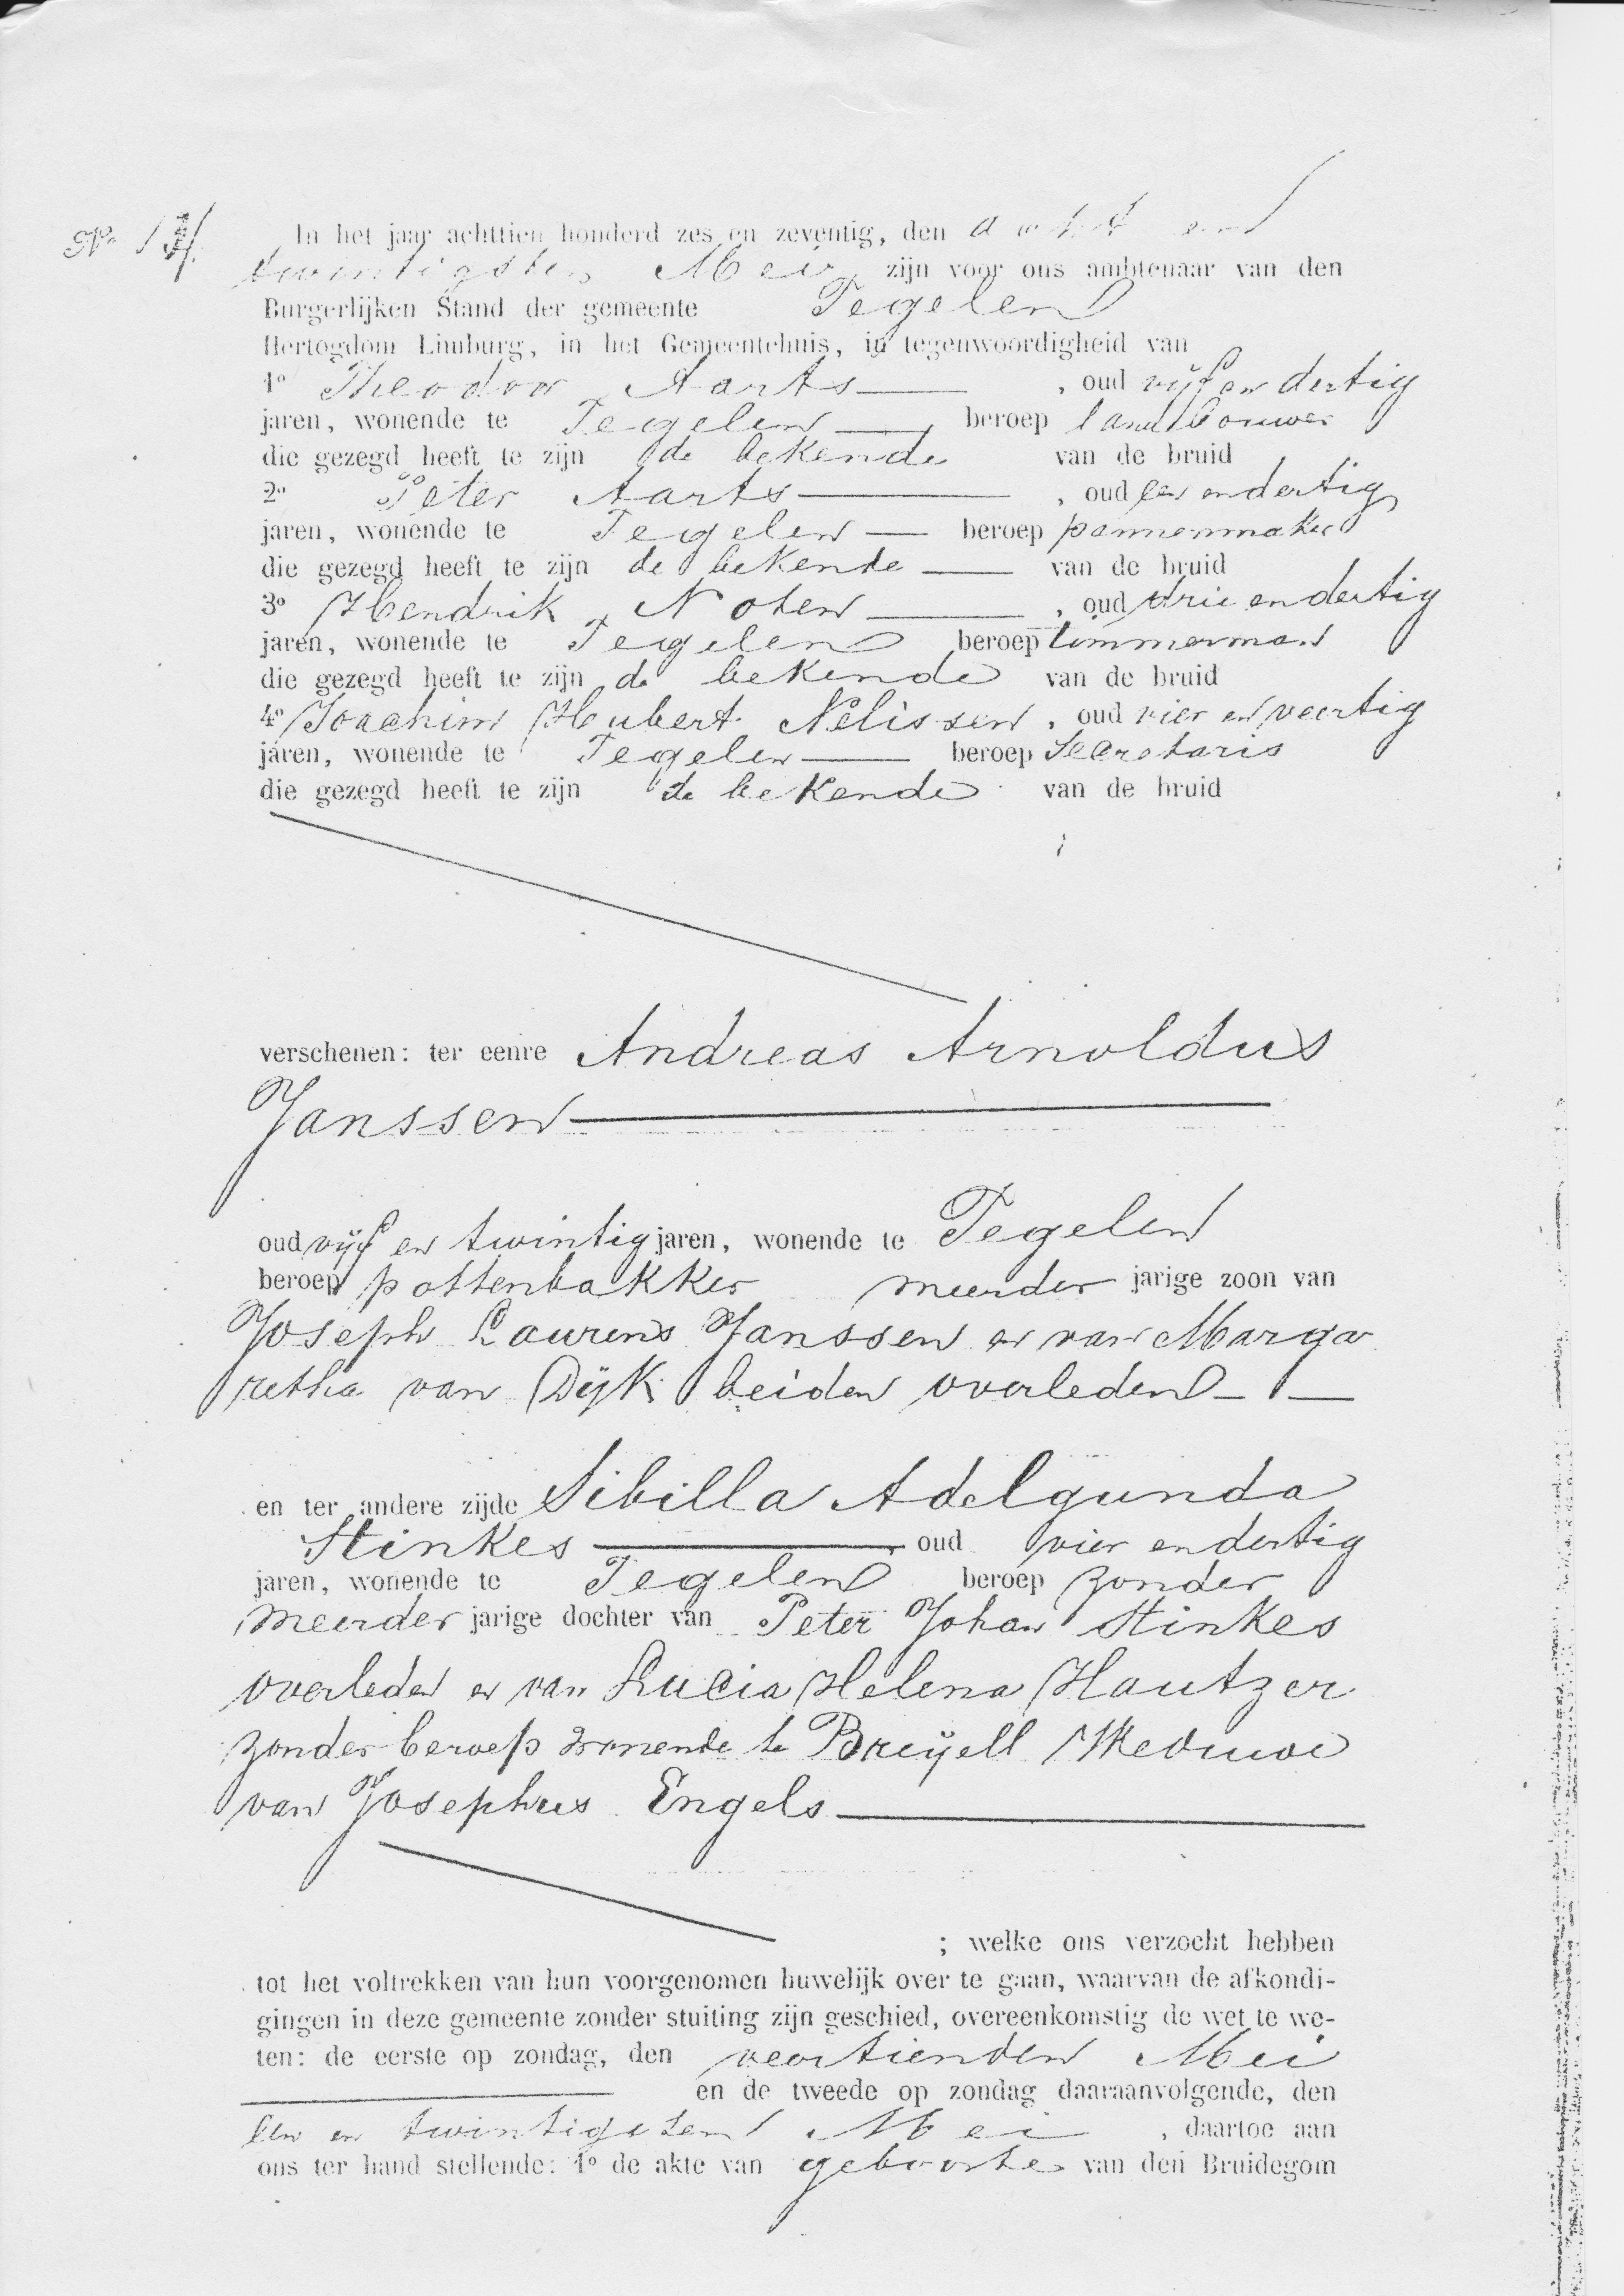 No 17.
In het jaar achttien honderd zes en zeventig, den acht en
twintigsten Mei, zijn voor ons ambtenaar van den
Burgerlijken Stand der gemeente Tegelen
Hertogdom Limburg, in het Gemeentehuis, in tegenwoordigheid van
1o Theodoor Aarts , oud vijf en dertig
jaren, wonende te Tegelen , beroep landbouwer
die gezegd heeft te zijn de bekende van de bruid
2o Peter Aarts , oud een en dertig
jaren, wonende te Tegelen beroep pannenmaker
die gezegd heeft te zijn de bekende van de bruid
3o Hendrik Noten , oud drie en dertig
jaren, wonende te Tegelen beroep timmerman
die gezegd heeft te zijn de bekende van de bruid
4o Joachim Hubert Nelissen , oud vier en veertig
jaren, wonende te Tegelen beroep Secretaris
die gezegd heeft te zijn de bekende van de bruid
verschenen: ter eenre Andreas Arnoldus
Janssen
oud vijf en twintig jaren, wonende te Tegelen
beroep pottenbakker meerder jarige zoon van
Joseph Laurens Janssen en van Marga
retha van Dijk beiden overleden
en ter andere zijde Sibilla Adelgunda
Stinkes oud vier en dertig
jaren, wonende te Tegelen beroep zonder
meerder jarige dochter van Peter Johan Stinkes
overleden en van Lucia Helena Hautzer
zonder beroep wonende te Breyell Weduwe
van Josephus Engels
; welke ons verzocht hebben
tot het voltrekken van hun voorgenomen huwelijk over te gaan, waarvan de afkondi-
gingen in deze gemeente zonder stuiting zijn geschied, overeenkomstig de wet te we-
ten: de eerste op zondag, den veertienden Mei
en de tweede op zondag daaraanvolgende, den
een en twintigsten Mei , daartoe aan
ons ter hand stellende: 1o de akte van geboorte van den Bruidegom